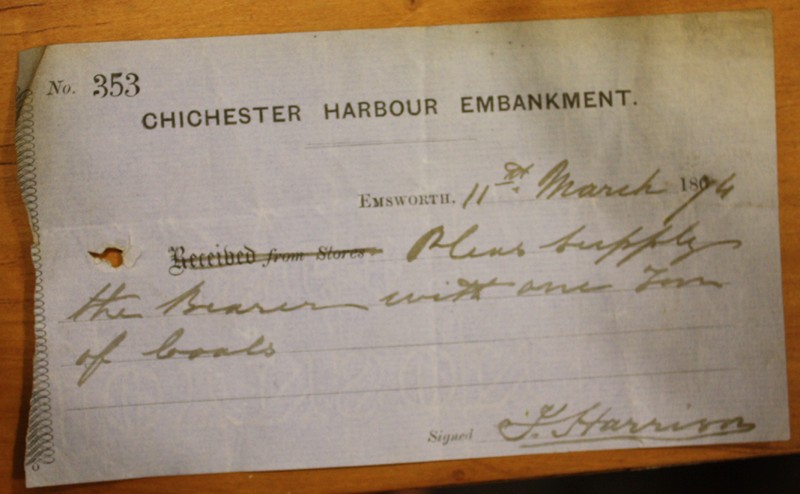 No. 353
CHICHESTER HARBOUR EMBANKMENT.
EMSWORTH, 11th March 1874
Received from Stores Pleas Supply
the Bearer with one Ton
of Coals
Signed T. Harrison